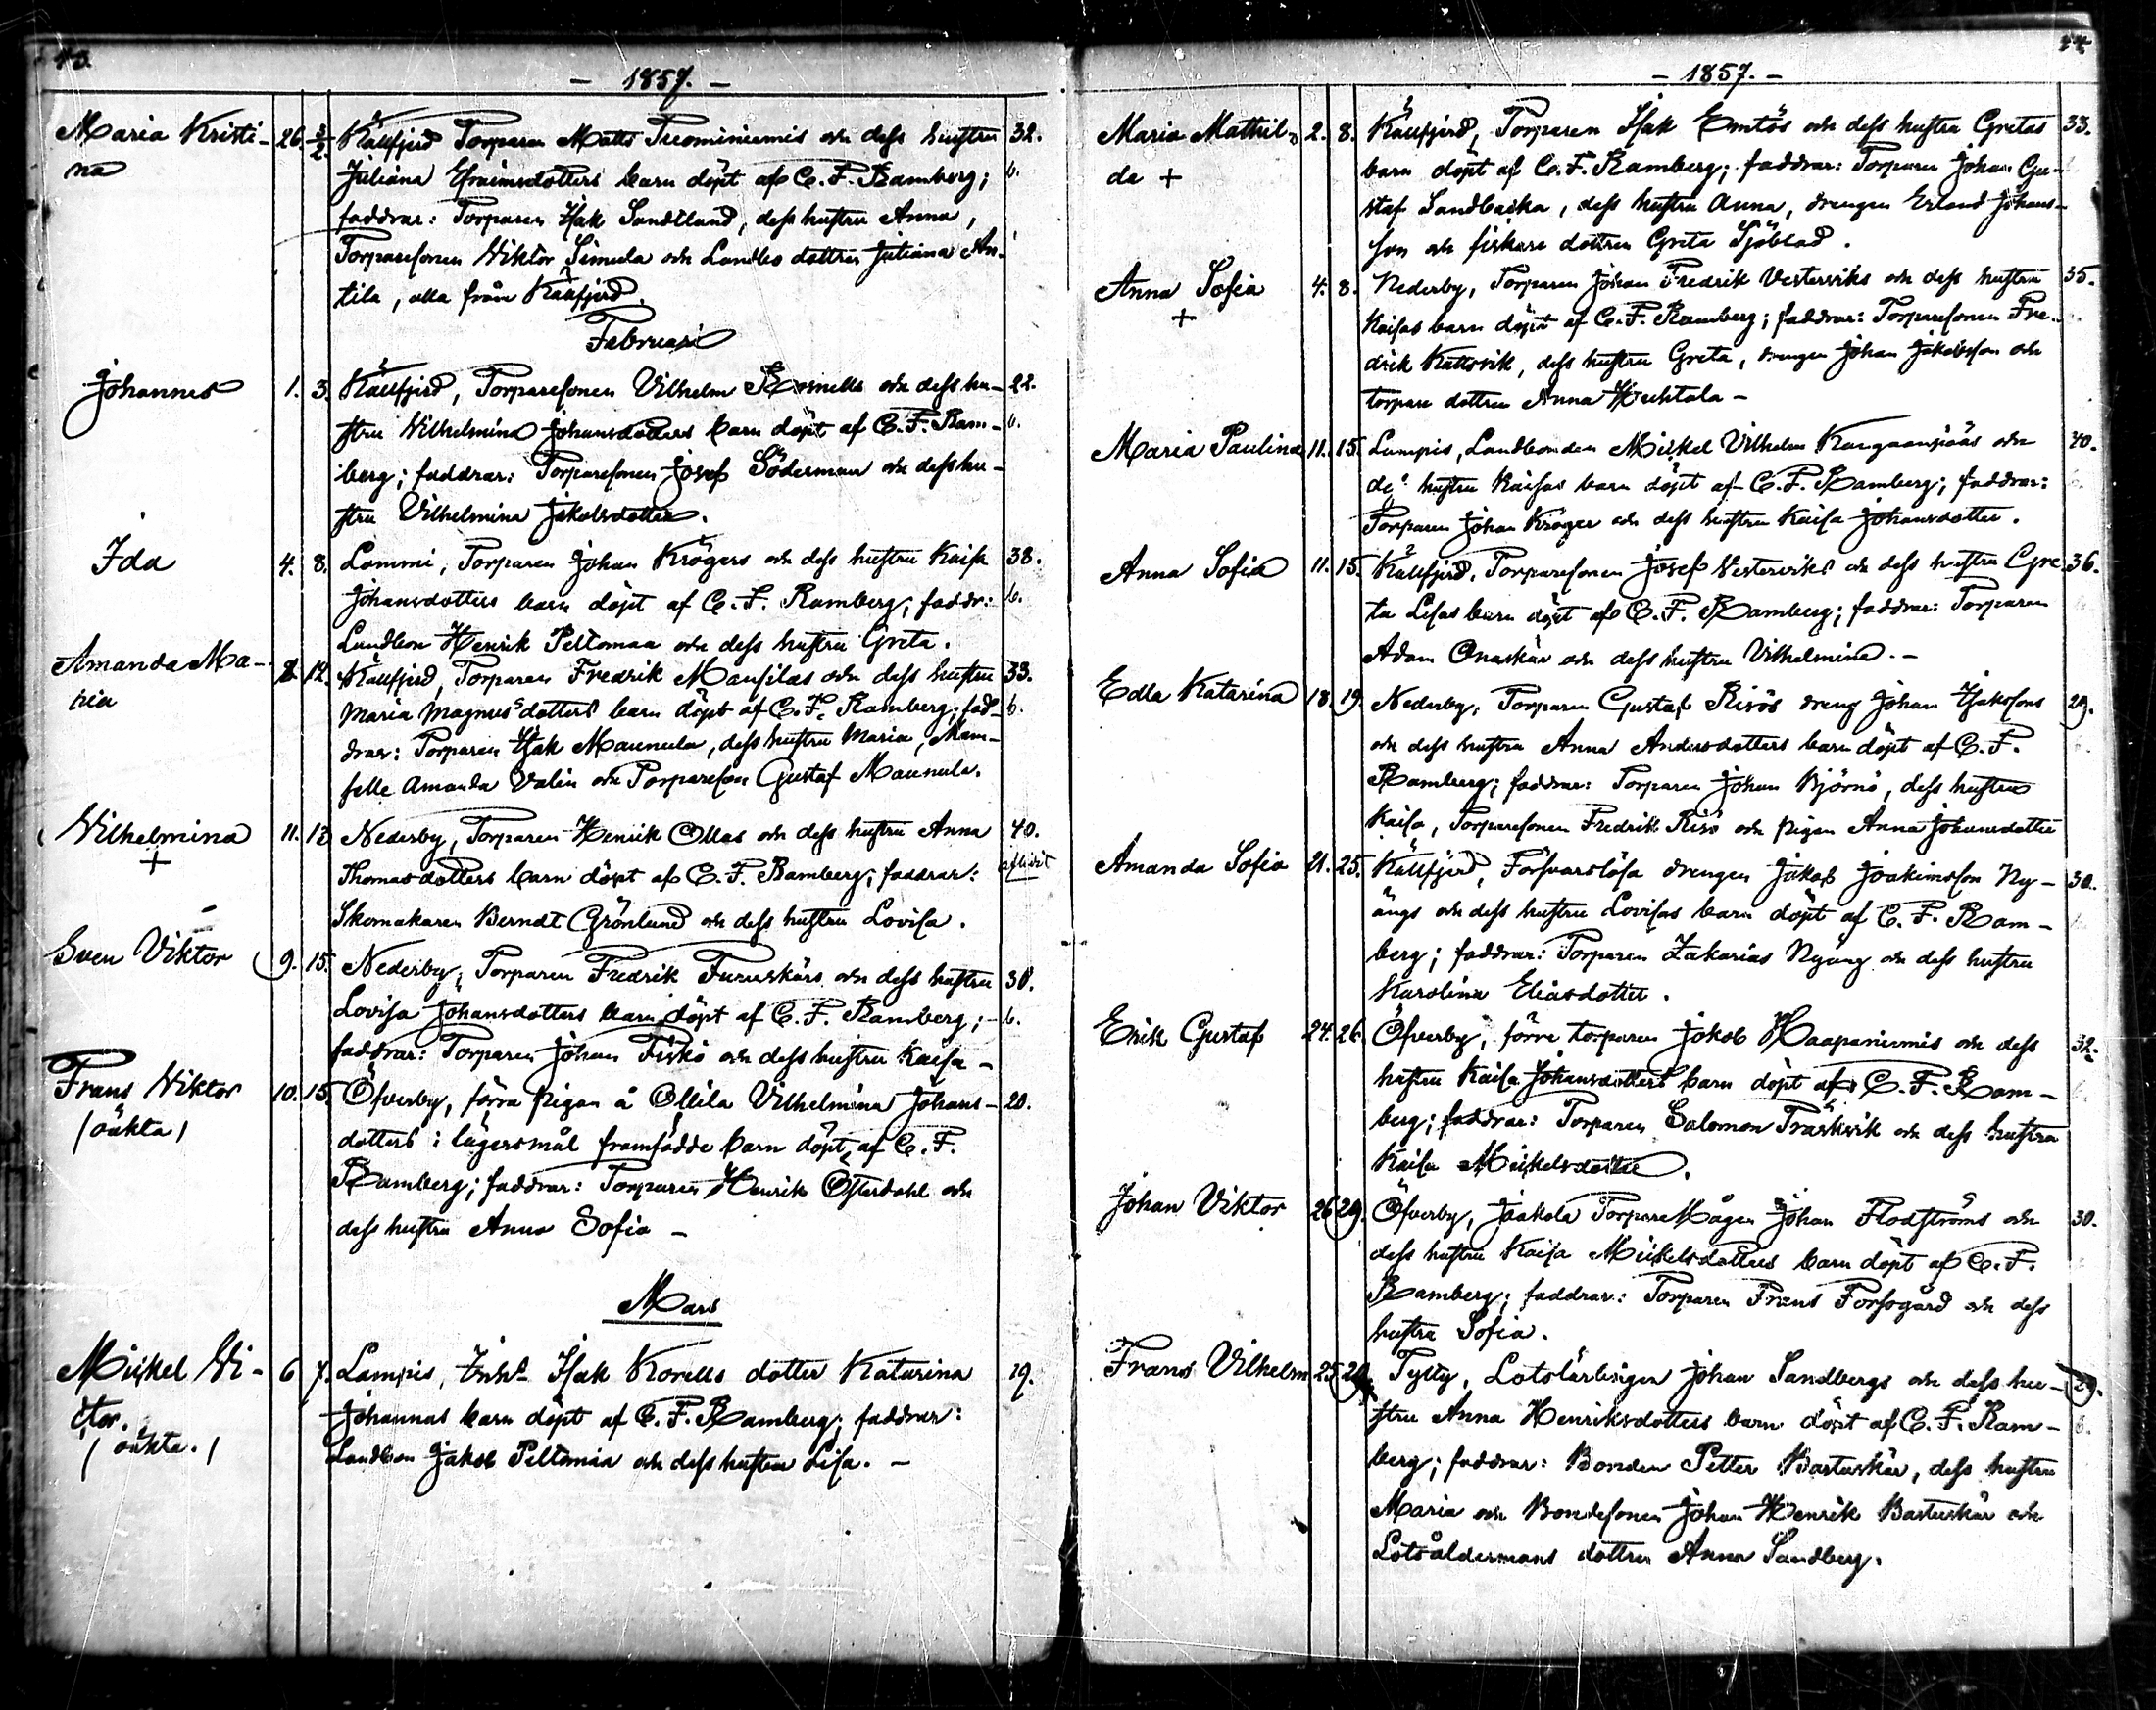 43.
- 1857. -
Maria Kristi- 26. 3/2. Källfjerd Torparen Matts Tuominiemis och dess hustru 32.
na Juliana Efraimsdotters barn döpt af C. F. Ramberg; b.
faddrar: Torparen Isak Sandlund, dess hustru Anna,
Torparesonen Viktor Simula och Landbo dottren Juliana An-
tila, alla från Källfjerd.
Februari
Johannes 1. 3. Källfjerd, Torparesonen Vilhelm Rosnells och dess hu- 22.
stru Vilhelmina Johansdotters barn döpt af C. F. Ram- b.
berg; faddrar: Torparesonen Josef Söderman och dess hu-
stru Vilhelmina Jakobsdotter.
Ida 4. 8. Lammi, Torparen Johan Krögers och dess hustru Kaisa 38.
Johansdotters barn döpt af C. F. Ramberg; faddr: b.
Landbon Henrik Peltomaa och dess hustru Greta.
Amanda Ma- 8. 12. Källfjerd, Torparen Fredrik Mansilas och dess hustru 33.
ria Maria Magnusdotters barn döpt af C. F. Ramberg; fad- b.
drar: Torparen Isak Maunula, dess hustru Maria, Mam-
selle Amanda Valin och Torpareson Gustaf Maunula.
Vilhelmina 11. 12 Nederby, Torparen Henrik Ollas och dess hustru Anna 40.
+ Thomasdotters barn döpt af C. F. Ramberg; faddrar:
Skomakaren Berndt Grönlund och dess hustru Lovisa.
Sven Viktor 9. 15. Nederby, Torparen Fredrik Furuskärs och dess hustru 30.
Lovisa Johansdotters barn döpt af C. F. Ramberg; - b.
faddrar: Torparen Johan Fiskö och dess hustru Kaisa -
Frans Viktor 10. 15. Öfverby, förra pigan å Ollila Vilhelmina Johans- 20.
/oäkta/ dotters i lägersmål framfödde barn döpt af C. F.
Ramberg; faddrar: Torparen Henrik Österdahl och
dess hustru Anna Sofia -
Mars
Mickel Vi- 6 7. Lampis, Inhs Isak Korells dotter Katarina 19.
ctor. Johannas barn döpt af C. F. Ramberg; faddrar:
/oäkta./ Landbon Jakob Peltomaa och dess hustru Lisa. -
44
- 1857. -
Maria Mathil- 2. 8. Källfjerd, Torparen Isak Emtös och dess hustru Gretas 33.
da + barn döpt af C. F. Ramberg; faddrar: Torparen Johan Gu-
staf Sandbacka, dess hustru Anna, drengen Erland Johans-
son och fiskare dottren Greta Sjöblad.
Anna Sofia 4. 8. Nederby, Torparen Johan Fredrik Vesterviks och dess hustru 35.
+ Kaisas barn döpt af C. F. Ramberg; faddrar: Torparesonen Fre-
drik Kattsvik, dess hustru Greta, drengen Johan Jakobsson och
torpare dottren Anna Huhtala -
Maria Paulina 11. 15. Lampis, Landbonden Mickel Vilhelm Kangaanpääs och 40.
des hustru Kaisas barn döpt af C. F. Ramberg; faddrar:
Torparen Johan Kröger och dess hustru Kaisa Johansdotter.
Anna Sofia 11. 15. Källfjerd, Torparesonen Josef Vesterviks och dess hustru Gre- 36.
ta Lisas barn döpt af C. F. Ramberg; faddrar: Torparen
Adam Onaskär och dess hustru Vilhelmina. -
Edla Katarina 18. 19. Nederby, Torparen Gustaf Risös dreng Johan Isakssons 29.
och dess hustru Anna Andersdotters barn döpt af C. F.
Ramberg; faddrar: Torparen Johan Björnö, dess hustru
Kaisa, Torparesonen Fredrik Risö och pigan Anna Johansdotter
Amanda Sofia 21. 25. Källfjerd, Försvarslösa drengen Jakob Joakimsson Ny- 30.
ängs och dess hustru Lovisas barn döpt af C. F. Ram-
berg; faddrar: Torparen Zakarias Nyäng och dess hustru
Karolina Eliasdotter.
Erik Gustaf 24. 26. Öfverby, förre torparen Jakob Haapaniemis och dess 32.
hustru Kaisa Johansdotters barn döpt af C. F. Ram-
berg; faddrar: Torparen Salomon Träskvik och dess hustru
Kaisa Mickelsdotter.
Johan Viktor 26 29. Öfverby, Jaakola Torpare Mågen Johan Flodströms och 30.
dess hustru Kaisa Mickelsdotters barn döpt af C. F.
Ramberg; faddrar: Torparen Frans Forsgård och dess
hustru Sofia.
Frans Vilhelm 25 29. Tytty, Lotslärlingen Johan Sandbergs och dess hu- 29.
stru Anna Henriksdotters barn döpt af C. F. Ram- b.
berg; faddrar: Bonden Petter Bastuskär, dess hustru
Maria och Bondesonen Johan Henrik Bastuskär och
Lotsåldermans dottren Anna Sandberg.